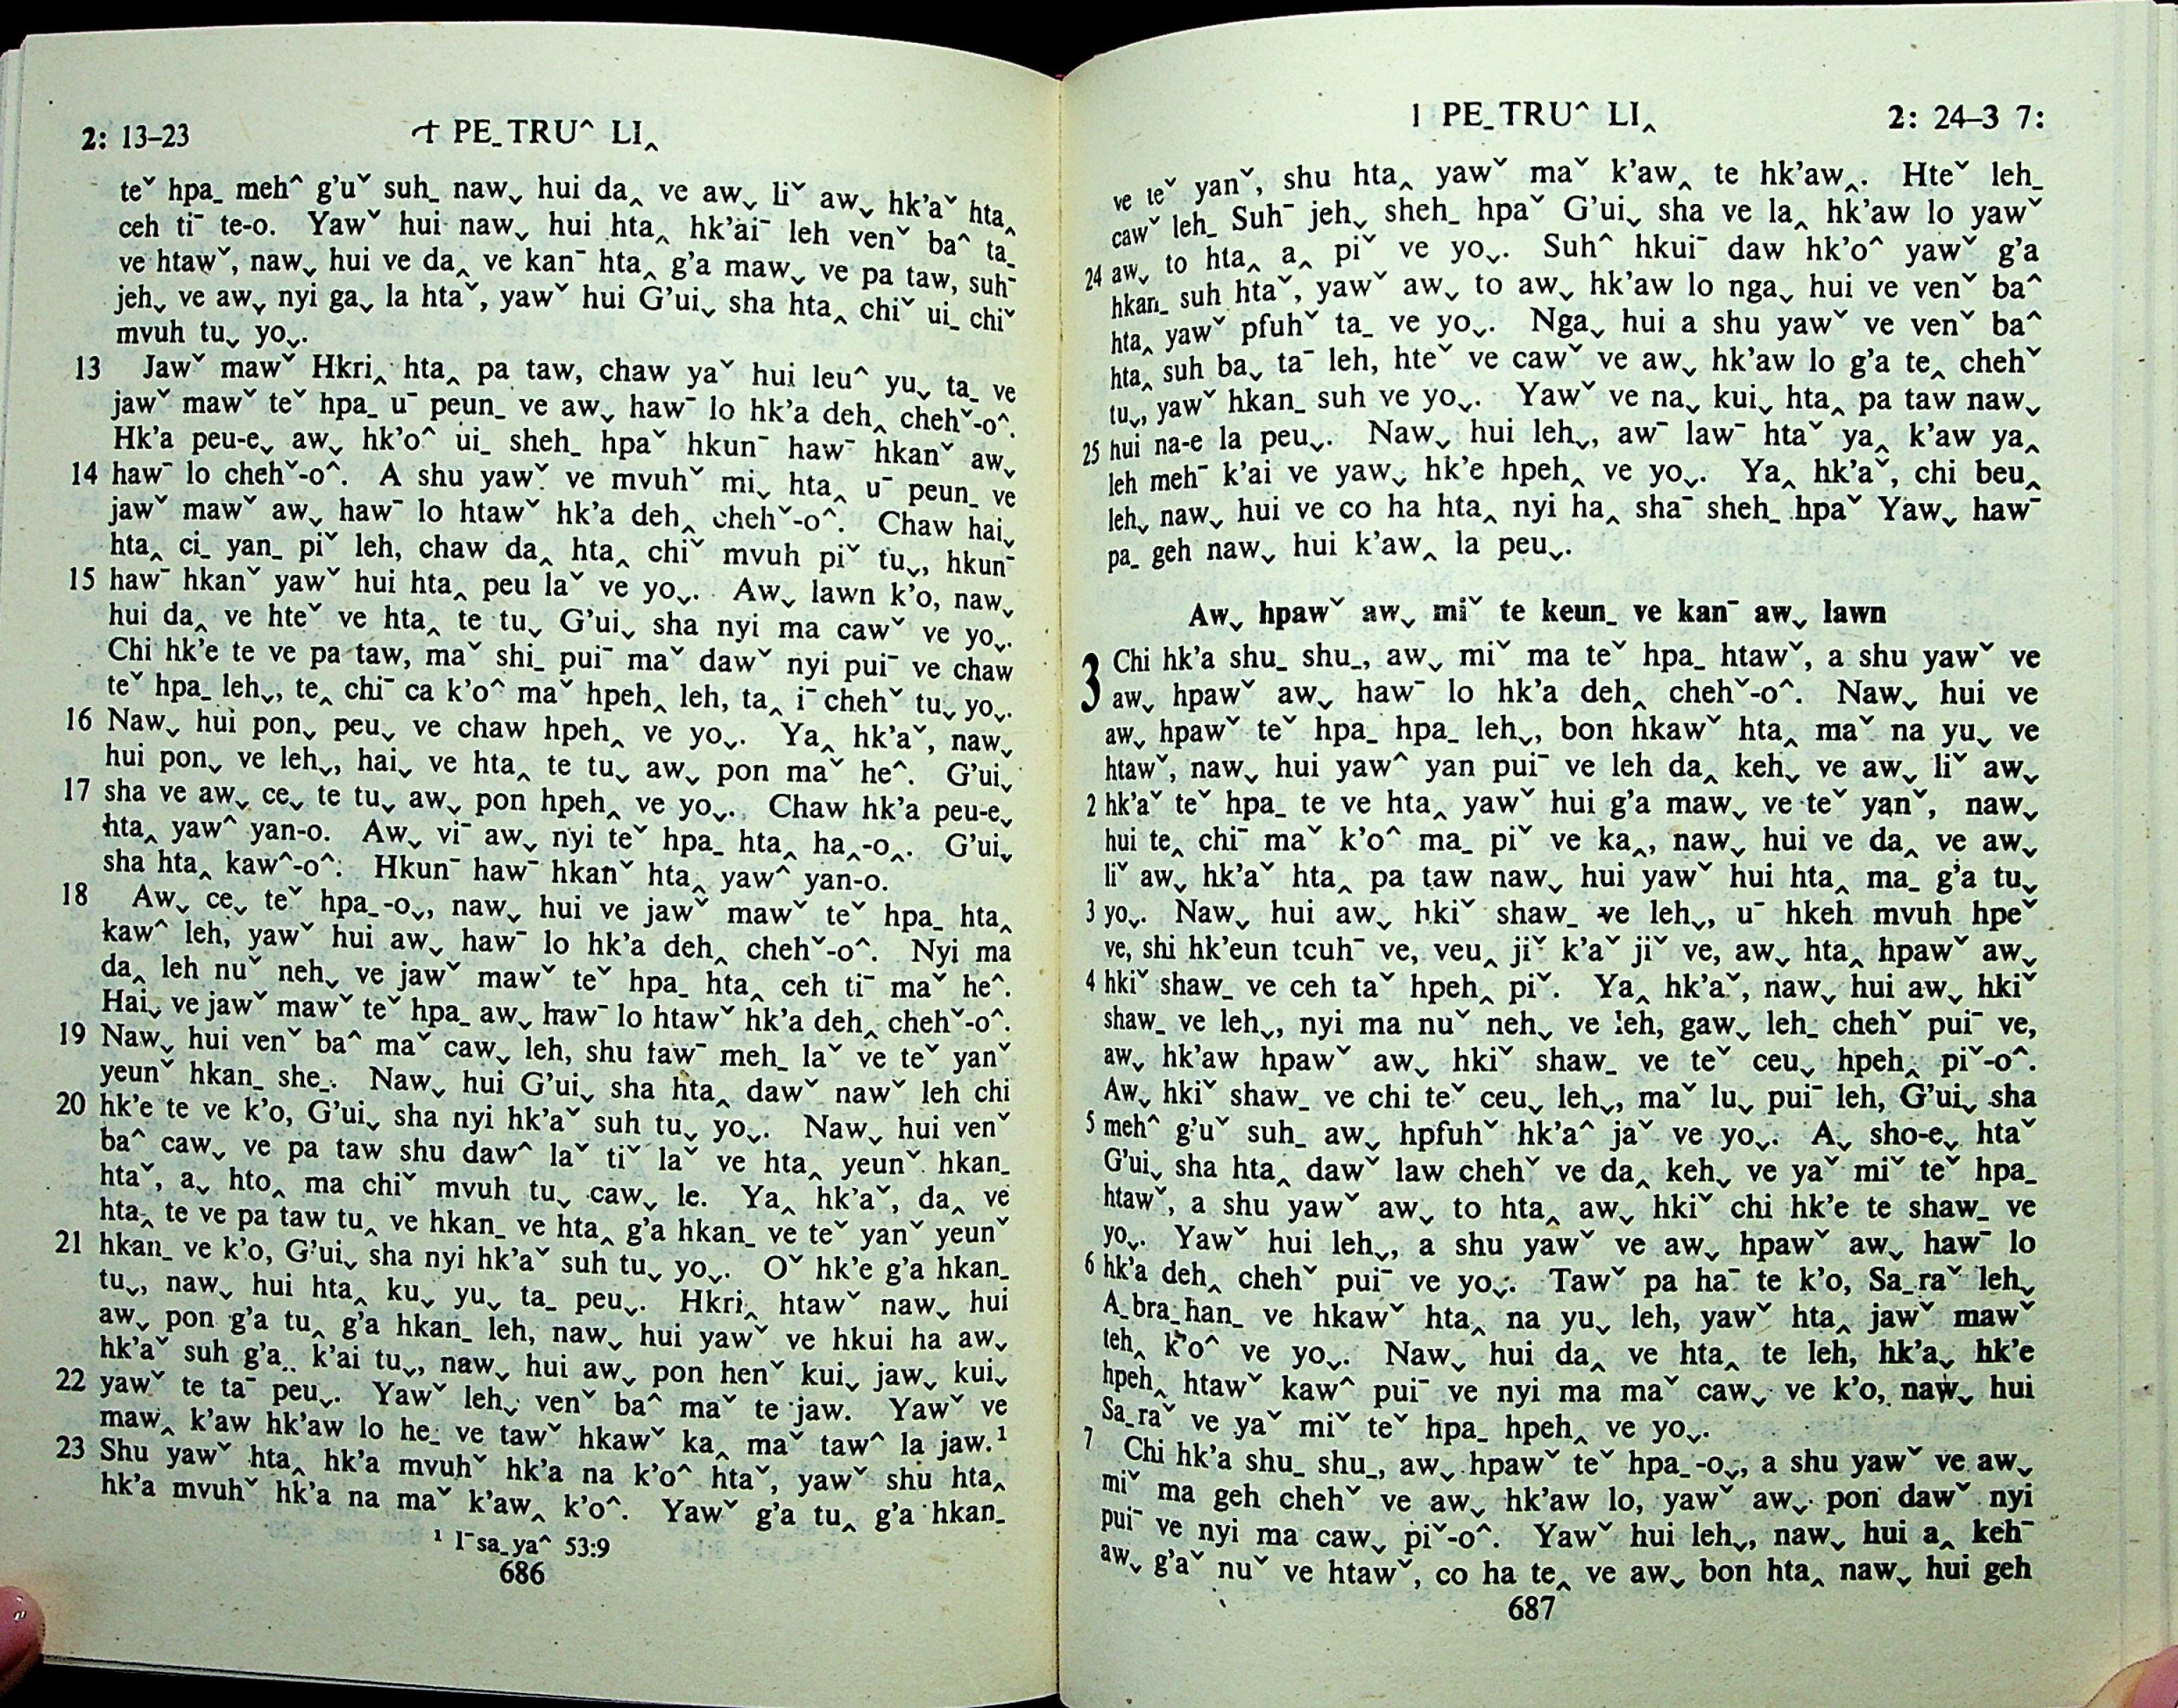 2: 13–23 1 PE˗TRU^ LI‸
teˇ hpa˗ meh^ g’uˇ suh˗ naw ̬ hui da‸ ve aw ̬ liˇ aw ̬ hk’aˇ hta‸
ceh tiˉ te-o. Yawˇ hui naw ̬ hui hta‸ hk’aiˉ leh venˇ ba^ ta˗
ve htawˇ, naw ̬ hui ve da‸ ve kanˉ hta‸ g’a maw ̬ ve pa taw, suhˉ
jeh ̬ ve aw ̬ nyi ga ̬ la htaˇ, yawˇ hui G’ui ̬ sha hta‸ chiˇ ui˗ chiˇ
mvuh tu ̬ yo ̬.
13 Jawˇ mawˇ Hkri‸ hta‸ pa taw, chaw yaˇ hui leu^ yu ̬ ta˗ ve
jawˇ mawˇ teˇ hpa˗ uˉ peun˗ ve aw ̬ hawˉ lo hk’a deh‸ chehˇ-o^.
Hk’a peu-e ̬ aw ̬ hk’o^ ui˗ sheh˗ hpaˇ hkunˉ hawˉ hkanˇ aw ̬
14 hawˉ lo chehˇ-o^. A shu yawˇ ve mvuhˇ mi ̬ hta‸ uˉ peun˗ ve
jawˇ mawˇ aw ̬ hawˉ lo htawˇ hk’a deh‸ chehˇ-o^. Chaw hai ̬
hta‸ ci˗ yan˗ piˇ leh, chaw da‸ hta‸ chiˇ mvuh piˇ tu ̬, hkunˉ
15 hawˉ hkanˇ yawˇ hui hta‸ peu laˇ ve yo ̬. Aw ̬ lawn k’o, naw ̬
hui da‸ ve hteˇ ve hta‸ te tu ̬ G’ui ̬ sha nyi ma cawˇ ve yo ̬.
Chi hk’e te ve pa taw, maˇ shi˗ puiˉ maˇ dawˇ nyi puiˉ ve chaw
teˇ hpa˗ leh ̬, te‸ chiˉ ca k’o^ maˇ hpeh‸ leh, ta‸ iˉ chehˇ tu ̬ yo ̬.
16 Naw ̬ hui pon ̬ peu ̬ ve chaw hpeh‸ ve yo ̬. Ya‸ hk’aˇ, naw ̬
hui pon ̬ ve leh ̬, hai ̬ ve hta‸ te tu ̬ aw ̬ pon maˇ he^. G’ui ̬
17 sha ve aw ̬ ce ̬ te tu ̬ aw ̬ pon hpeh‸ ve yo ̬. Chaw hk’a peu-e ̬
hta‸ yaw^ yan-o. Aw ̬ viˉ aw ̬ nyi teˇ hpa˗ hta‸ ha‸-o‸. G’ui ̬
sha hta‸ kaw^-o^. Hkunˉ hawˉ hkanˇ hta‸ yaw^ yan-o.
18 Aw ̬ ce ̬ teˇ hpa˗-o ̬, naw ̬ hui ve jawˇ mawˇ teˇ hpa˗ hta‸
kaw^ leh, yawˇ hui aw ̬ hawˉ lo hk’a deh‸ chehˇ-o^. Nyi ma
da‸ leh nuˇ neh ̬ ve jawˇ mawˇ teˇ hpa˗ hta‸ ceh tiˉ maˇ he^.
Hai ̬ ve jawˇ mawˇ teˇ hpa˗ aw ̬ hawˉ lo htawˇ hk’a deh‸ chehˇ-o^.
19 Naw ̬ hui venˇ ba^ maˇ caw ̬ leh, shu tawˉ meh˗ laˇ ve teˇ yanˇ
yeunˇ hkan˗ she˗. Naw ̬ hui G’ui ̬ sha hta‸ dawˇ nawˇ leh chi
20 hk’e te ve k’o, G’ui ̬ sha nyi hk’aˇ suh tu ̬ yo ̬. Naw ̬ hui venˇ
ba^ caw ̬ ve pa taw shu daw^ laˇ tiˇ laˇ ve hta‸ yeunˇ hkan˗
htaˇ, a ̬ hto‸ ma chiˇ mvuh tu ̬ caw ̬ le. Ya‸ hk’aˇ, da‸ ve
hta‸ te ve pa taw tu‸ ve hkan˗ ve hta‸ g’a hkan˗ ve teˇ yanˇ yeunˇ
21 hkan˗ ve k’o, G’ui ̬ sha nyi hk’aˇ suh tu ̬ yo ̬. Oˇ hk’e g’a hkan˗
tu ̬, naw ̬ hui hta‸ ku ̬ yu ̬ ta˗ peu ̬. Hkri‸ htawˇ naw ̬ hui
aw ̬ pon g’a tu‸ g’a hkan˗ leh, naw ̬ hui yawˇ ve hkui ha aw ̬
hk’aˇ suh g’a ̬ k’ai tu ̬, naw ̬ hui aw ̬ pon henˇ kui ̬ jaw ̬ kui ̬
22 yawˇ te taˉ peu ̬. Yawˇ leh ̬ venˇ ba^ maˇ te jaw. Yawˇ ve
maw‸ k’aw hk’aw lo he˗ ve tawˇ hkawˇ ka‸ maˇ taw^ la jaw.¹
23 Shu yawˇ hta‸ hk’a mvuhˇ hk’a na k’o^ htaˇ, yawˇ shu hta‸
hk’a mvuhˇ hk’a na maˇ k’aw‸ k’o^. Yawˇ g’a tu‸ g’a hkan˗
¹ Iˉsa˗ya^ 53:9
686
1 PE˗TRU^ LI‸ 2: 24–3 7:
ve teˇ yanˇ, shu hta‸ yawˇ maˇ k’aw‸ te hk’aw‸. Hteˇ leh˗
cawˇ leh˗ Suhˉ jeh ̬ sheh˗ hpaˇ G’ui ̬ sha ve la‸ hk’aw lo yawˇ
24 aw ̬ to hta‸ a‸ piˇ ve yo ̬. Suh^ hkuiˉ daw hk’o^ yawˇ g’a
hkan˗ suh htaˇ, yawˇ aw ̬ to aw ̬ hk’aw lo nga ̬ hui ve venˇ ba^
hta‸ yawˇ pfuhˇ ta˗ ve yo ̬. Nga ̬ hui a shu yawˇ ve venˇ ba^
hta‸ suh ba ̬ taˉ leh, hteˇ ve cawˇ ve aw ̬ hk’aw lo g’a te‸ chehˇ
tu ̬, yawˇ hkan˗ suh ve yo ̬. Yawˇ ve na ̬ kui ̬ hta‸ pa taw naw ̬
25 hui na-e la peu ̬. Naw ̬ hui leh ̬, awˉ lawˉ htaˇ ya‸ k’aw ya‸
leh mehˉ k’ai ve yaw ̬ hk’e hpeh‸ ve yo ̬. Ya‸ hk’aˇ, chi beu‸
leh ̬ naw ̬ hui ve co ha hta‸ nyi ha‸ shaˉ sheh˗ hpaˇ Yaw ̬ hawˉ
pa˗ geh naw ̬ hui k’aw‸ la peu ̬.
Aw ̬ hpawˇ aw ̬ miˇ te keun˗ ve kanˉ aw ̬ lawn
3 Chi hk’a shu˗ shu˗, aw ̬ miˇ ma teˇ hpa˗ htawˇ, a shu yawˇ ve
aw ̬ hpawˇ aw ̬ hawˉ lo hk’a deh‸ chehˇ-o^. Naw ̬ hui ve
aw ̬ hpawˇ teˇ hpa˗ hpa˗ leh ̬, bon hkawˇ hta‸ maˇ na yu ̬ ve
htawˇ, naw ̬ hui yaw^ yan puiˉ ve leh da‸ keh ̬ ve aw ̬ liˇ aw ̬
2 hk’aˇ teˇ hpa˗ te ve hta‸ yawˇ hui g’a maw ̬ ve teˇ yanˇ, naw ̬
hui te‸ chiˉ maˇ k’o^ ma˗ piˇ ve ka‸, naw ̬ hui ve da‸ ve aw ̬
liˇ aw ̬ hk’aˇ hta‸ pa taw naw ̬ hui yawˇ hui hta‸ ma˗ g’a tu ̬
3 yo ̬. Naw ̬ hui aw ̬ hkiˇ shaw˗ ve leh ̬, uˉ hkeh mvuh hpeˇ
ve, shi hk’eun tcuhˉ ve, veu‸ jiˇ k’aˇ jiˇ ve, aw ̬ hta‸ hpawˇ aw ̬
4 hkiˇ shaw˗ ve ceh taˇ hpeh‸ piˇ. Ya‸ hk’aˇ, naw ̬ hui aw ̬ hkiˇ
shaw˗ ve leh ̬, nyi ma nuˇ neh ̬ ve leh, gaw ̬ leh˗ chehˇ puiˉ ve,
aw ̬ hk’aw hpawˇ aw ̬ hkiˇ shaw˗ ve teˇ ceu ̬ hpeh‸ piˇ-o^.
Aw ̬ hkiˇ shaw˗ ve chi teˇ ceu ̬ leh ̬, maˇ lu ̬ puiˉ leh, G’ui ̬ sha
5 meh^ g’uˇ suh˗ aw ̬ hpfuhˇ hk’a^ jaˇ ve yo ̬. A ̬ sho-e ̬ htaˇ
G’ui ̬ sha hta‸ dawˇ law chehˇ ve da‸ keh ̬ ve yaˇ miˇ teˇ hpa˗
htawˇ, a shu yawˇ aw ̬ to hta‸ aw ̬ hkiˇ chi hk’e te shaw˗ ve
yo ̬. Yawˇ hui leh ̬, a shu yawˇ ve aw ̬ hpawˇ aw ̬ hawˉ lo
6 hk’a deh‸ chehˇ puiˉ ve yo ̬. Tawˇ pa haˉ te k’o, Sa˗raˇ leh ̬
A˗bra˗han˗ ve hkawˇ hta‸ na yu ̬ leh, yawˇ hta‸ jawˇ mawˇ
teh‸ k’o^ ve yo ̬. Naw ̬ hui da‸ ve hta‸ te leh, hk’a ̬ hk’e
hpeh‸ htawˇ kaw^ puiˉ ve nyi ma maˇ caw ̬ ve k’o, naw ̬ hui
Sa˗raˇ ve yaˇ miˇ teˇ hpa˗ hpeh‸ ve yo ̬.
7 Chi hk’a shu˗ shu˗, aw ̬ hpawˇ teˇ hpa˗-o ̬, a shu yawˇ ve aw ̬
miˇ ma geh chehˇ ve aw ̬ hk’aw lo, yawˇ aw ̬ pon dawˇ nyi
puiˉ ve nyi ma caw ̬ piˇ-o^. Yawˇ hui leh ̬, naw ̬ hui a‸ kehˉ
aw ̬ g’aˇ nuˇ ve htawˇ, co ha te‸ ve aw ̬ bon hta‸ naw ̬ hui geh
687